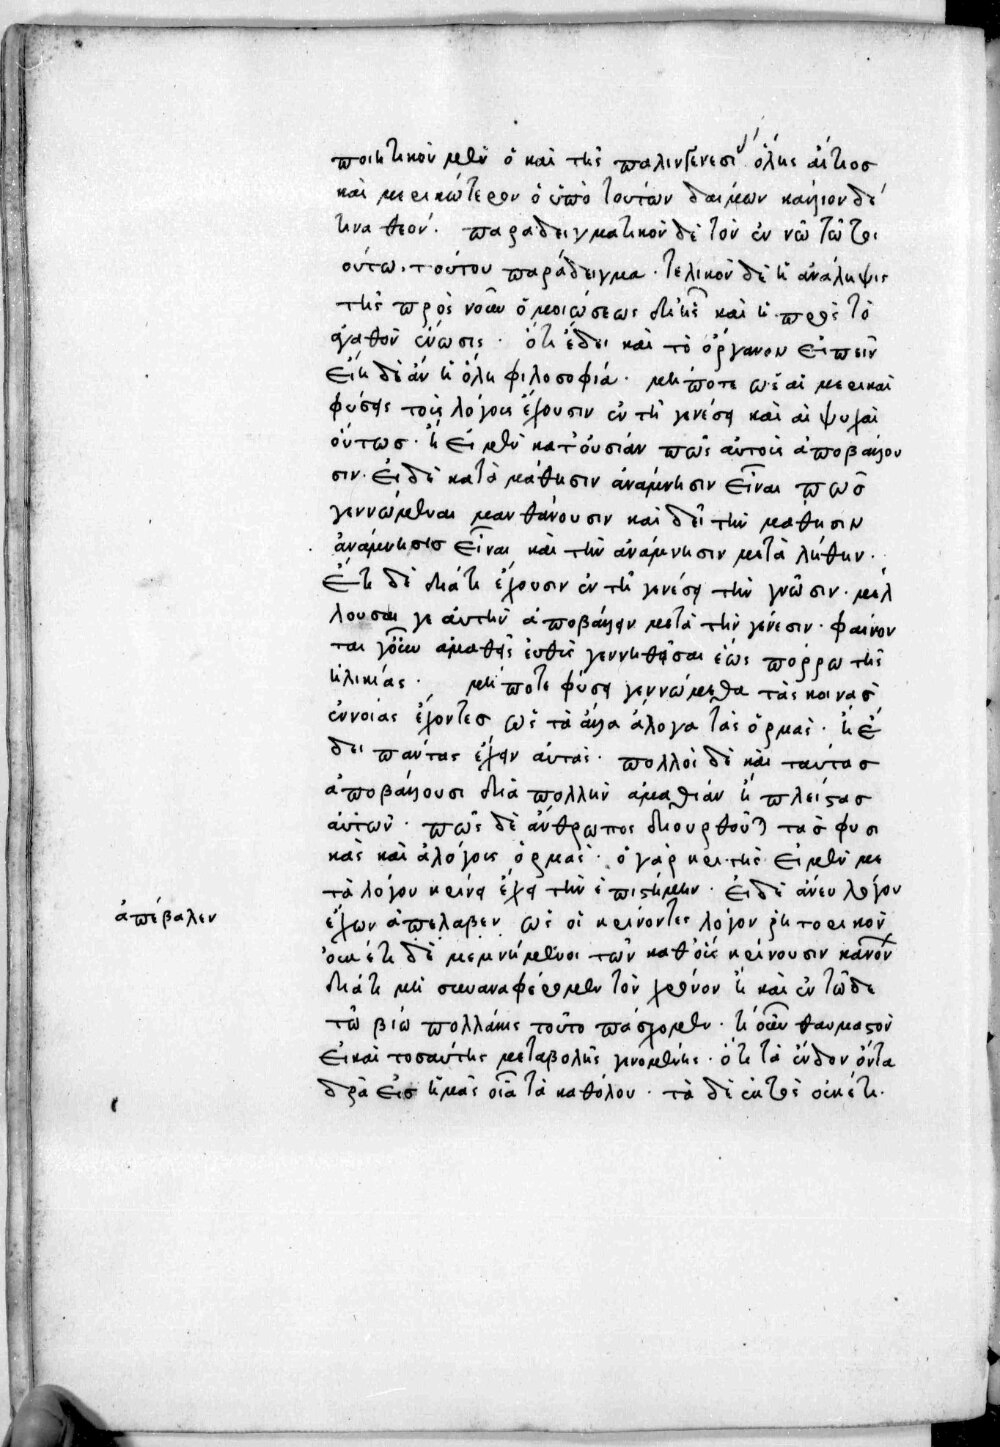 ποιητικὸν μὲν ὁ καὶ τῆς παλινγενεσί ὅλης αἴτιος
καὶ μερικώτερον ὁ ὑπὸ τουτων δαίμων κάλλιον δέ
τινα θεόν. παραδειγματικὸν δὲ τὸν ἐν νῶ τῶ
οὕτω. τούτου παράδειγμα. τελικὸν δὲ ἡ ἀνάληψις
τῆς πρὸς νοῦν ὁμοιώσεως καὶ ἡ πρὸς τὸ
ἀγαθὸν ἕνωσις. ὅτι ἔδει καὶ τὸ ὄργανον εἰπεῖν
εἴη δὲ ἂν ἡ ὅλη φιλοσοφία. μήποτε ὡς αἱ μερικαὶ
φύσεις τοὺς λόγους ἔχουσιν ἐν τῆ γενέσει καὶ αἱ ψυχαὶ
οὕτως. ἢ εἰ μὲν κατ' οὐσίαν πῶς αὐτοὺς ἀποβάλλου
σιν. εἰ δὲ κατὰ μάθησιν ἀνάμνησιν εἶναι πῶς
γεννώμεναι μανθάνουσιν καὶ δεῖ τὴν μάθησιν
ἀνάμνησις εἶναι καὶ τὴν ἀνάμνησιν μετὰ λήθην.
ἔτι δὲ διὰ τί ἔχουσιν ἐν τῆ γενέσει τὴν γνῶσιν. μέλ
λουσαι γε αὐτὴν ἀποβάλλειν μετὰ τὴν γένεσιν. φαίνον
ται γοῦν ἀμαθεῖς εὐθὺς γεννηθεῖσαι ἕως πόρρω τῆς
ἡλικίας. μήποτε φύσει γεννώμεθα τὰς κοινὰς
ἐννοίας ἔχοντες ὡς τὰ ἄλλα ἄλογα τὰς ὁρμάς. ἢ ἔ
δει πάντας ἔχειν αὐτάς. πολλοὶ δὲ καὶ ταύτας
ἀποβάλλουσι διὰ πολλὴν ἀμαθίαν ἢ πλείστας
αὐτῶν. πῶς δὲ ἄνθρωπος διορθοῦται τὰς φυσι
κὰς καὶ ἀλόγους ὁρμάς. ὁ γὰρ κριτὴς εἰ μὲν με
τὰ λόγου κρίνει ἔχει τὴν ἐπιστήμην. εἰ δὲ ἄνευ λόγου
ἀπέβαλεν
ἔχων ἀπέλαβεν ὡς οἱ κρίνοντες λόγον ῥητορικὸν
οὐκέτι δὲ μεμνημένοι τῶν καθ' οὓς κρίνουσιν κανόν
διὰ τί μὴ συναναφέρομεν τὸν χρόνον ἢ καὶ ἐν τῶδε
τῶ βίω πολλάκις τοῦτο πάσχομεν. τί οὖν θαυμαστὸν
εἰ καὶ τοσαύτης μεταβολῆς γενομένης. ὅτι τὰ ἔνδον ὄντα
δρᾶ εἰς ἡμᾶς οἷα τὰ καθόλου. τὰ δὲ ἐκτὸς οὐκέτι.